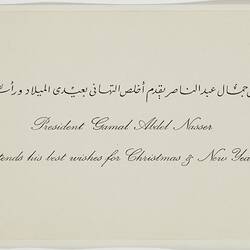 جمال عبد الناصر يقدم أخلص التهاني بعيدي الميلاد ورأس
President Gamal Abdel Nasser
tends his best wishes for Christmas & New Yea